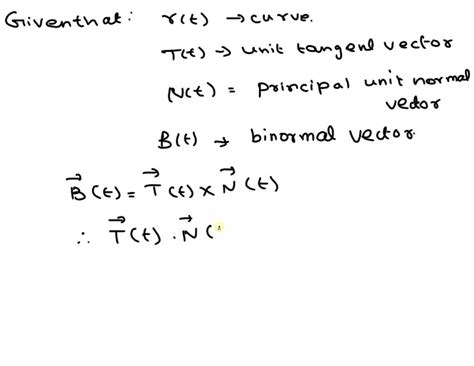 Giventhat: r(t) → curve.
T(t) → unit tangent vector
N(t) = principal unit normal
vector
B(t) → binormal vector.
B⃗(t) = T⃗(t) × N⃗(t)
∴ T⃗(t) . N⃗(